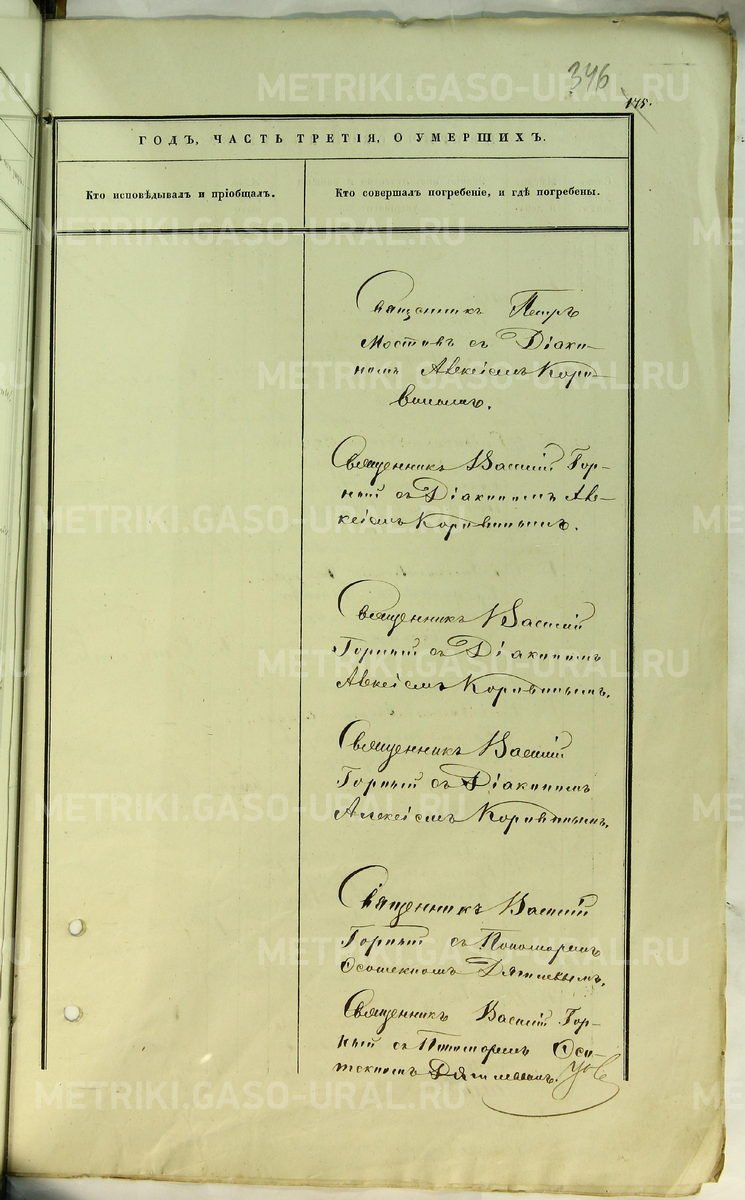 346
175.
ГОДЪ, ЧАСТЬ ТРЕТІЯ, О УМЕРШИХЪ.
Кто исповѣдывалъ и пріобщалъ.
Кто совершалъ погребеніе, и гдѣ погребены.
Священникъ Петръ
Мостовъ съ Діако-
номъ Алексіемъ Коро-
винымъ.
Священникъ Василій Гор-
ный съ Діакономъ Але-
ксіемъ Коровинымъ.
Священникъ Василій
Горный съ Діакономъ
Алексіемъ Коровинымъ.
Священникъ Василій
Горный съ Діакономъ
Алексіемъ Коровинымъ.
Священникъ Василій
Горный съ Пономаремъ
Дягилевымъ.
Священникъ Василій Гор-
ный съ Пономаремъ
Дягилевымъ.
METRIKI.GASO-URAL.RU